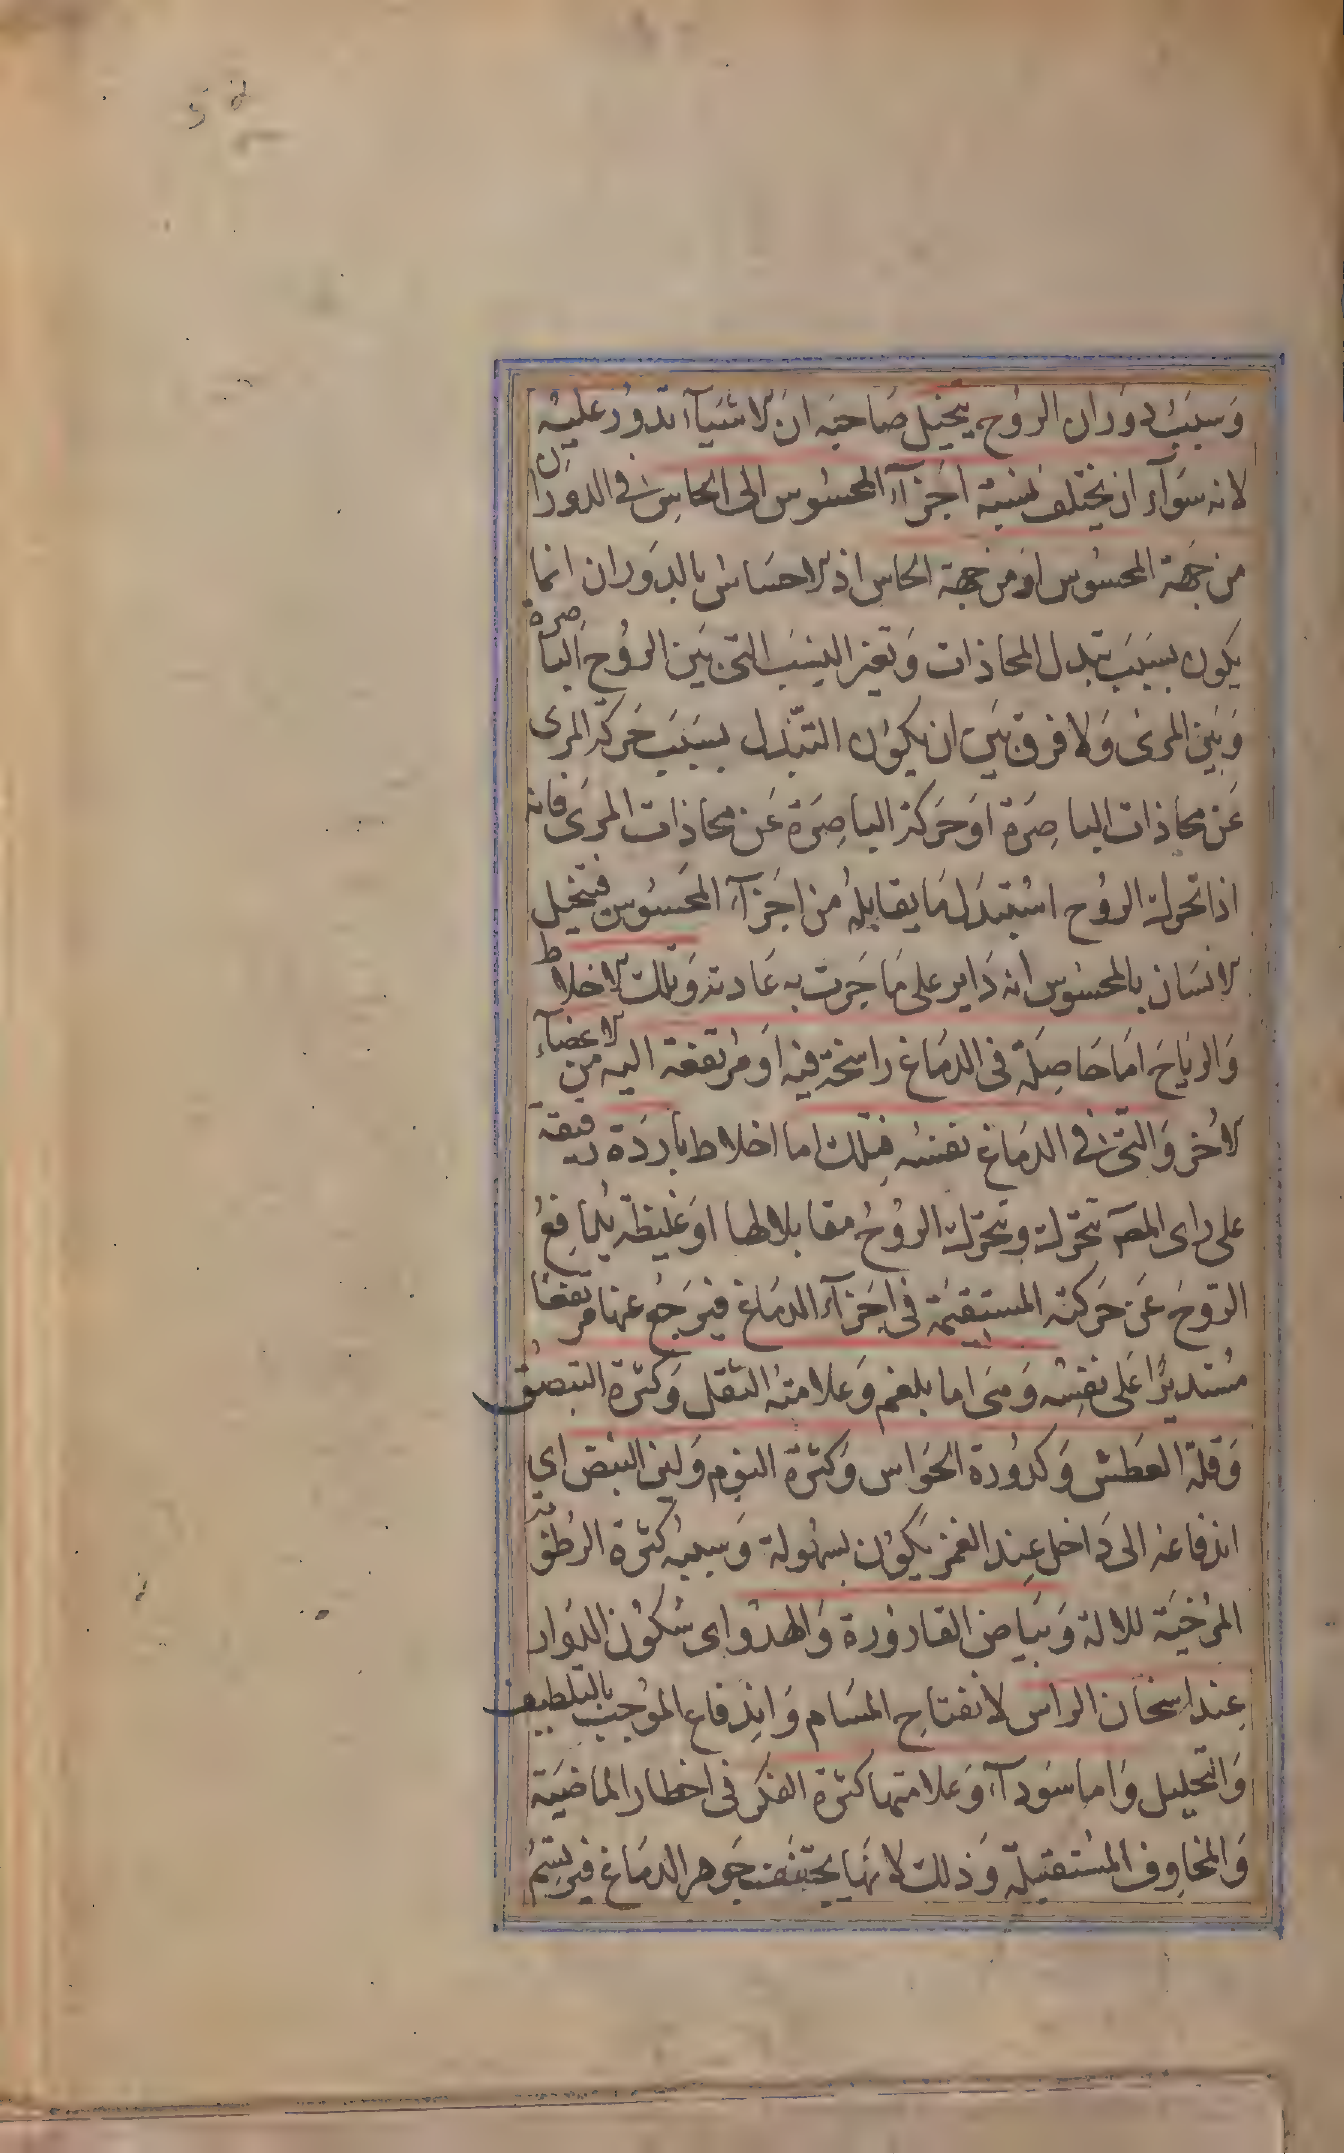 وَسبَبُ دوَران الروُح يتخيل صَاحبَه انَ الاشيَآء تدوُر عليْه
لانه سوَآء ان يختلف نسبَة اجَزآء المحسُوس الى الحاسِ فى الدوَران
من جهَة المحسُوس اوَ من جهة الحاس اذ الاحسَاسَ بالدوَران انما
يكون بسبَبَ تبدل المحاذات وَتغير النسَبَ التى بَين الروُح البَاصرة
وَبَين المرئ وَلا فرق بَين ان يكوُن التبَدل بسبَبَ حَركة المرئ
عَن محاذات الباصِرَة اوَ حَركة الباصِرَة عَن محاذات المرَئ فانه
اذا تحرك الروُح استبَدَل مَا يقابلهُ من اجَزآء المحَسُوس فيتخيل
الانسَان بالمحسُوس انه دَاير على مَا جَرت به عَادته وَتلك الاخلاط
وَالريَاحَ امَا حَاصِلَة فى الدمَاغ راسخة فيْه اوَ مرُتفعَة اليه من الاعضآء
الاخُر وَالتى فى الدمَاغ نفسُه فتلك اما اخلاط بَاردَة رقيقة
على راى المصَ تتحَرك وتحَرك الروُحُ مقابلا لها اوَ غليظة يُدافعُ
الروَحَ عَن حَركته المستقيمَة فى اجَزآء الدمَاغ فيَرجَع عنها مرتفعا
مُستديرًا على نفسْه وَهىَ اما بلغم وَعلامتهُ الثقل وَكثرة التبصق
وَقلة العَطش وَكدوُرة الحَواس وَكثرة النوم وَلين النبَض اى
اندفاعه الى دَاخل عِند الغمز يكوُن بسهُولة وَسببه كثرة الرطُوبة
المرُخيَة للالة وَبيَاض القاروُرة وَالهدوُ اى سُكون الدوَار
عِند اسخان الراس لانفتاح المسَام وَاندفاع الموُجب بالتلطيف
وَالتحليل وَاما سَودآء وَعلامتها كثرة الفكر فى اخطار الماضيَة
وَالمخاوف المسُتقبلة وَذلك لانهَا يجفف جَوهر الدمَاغ فيرتسمُ